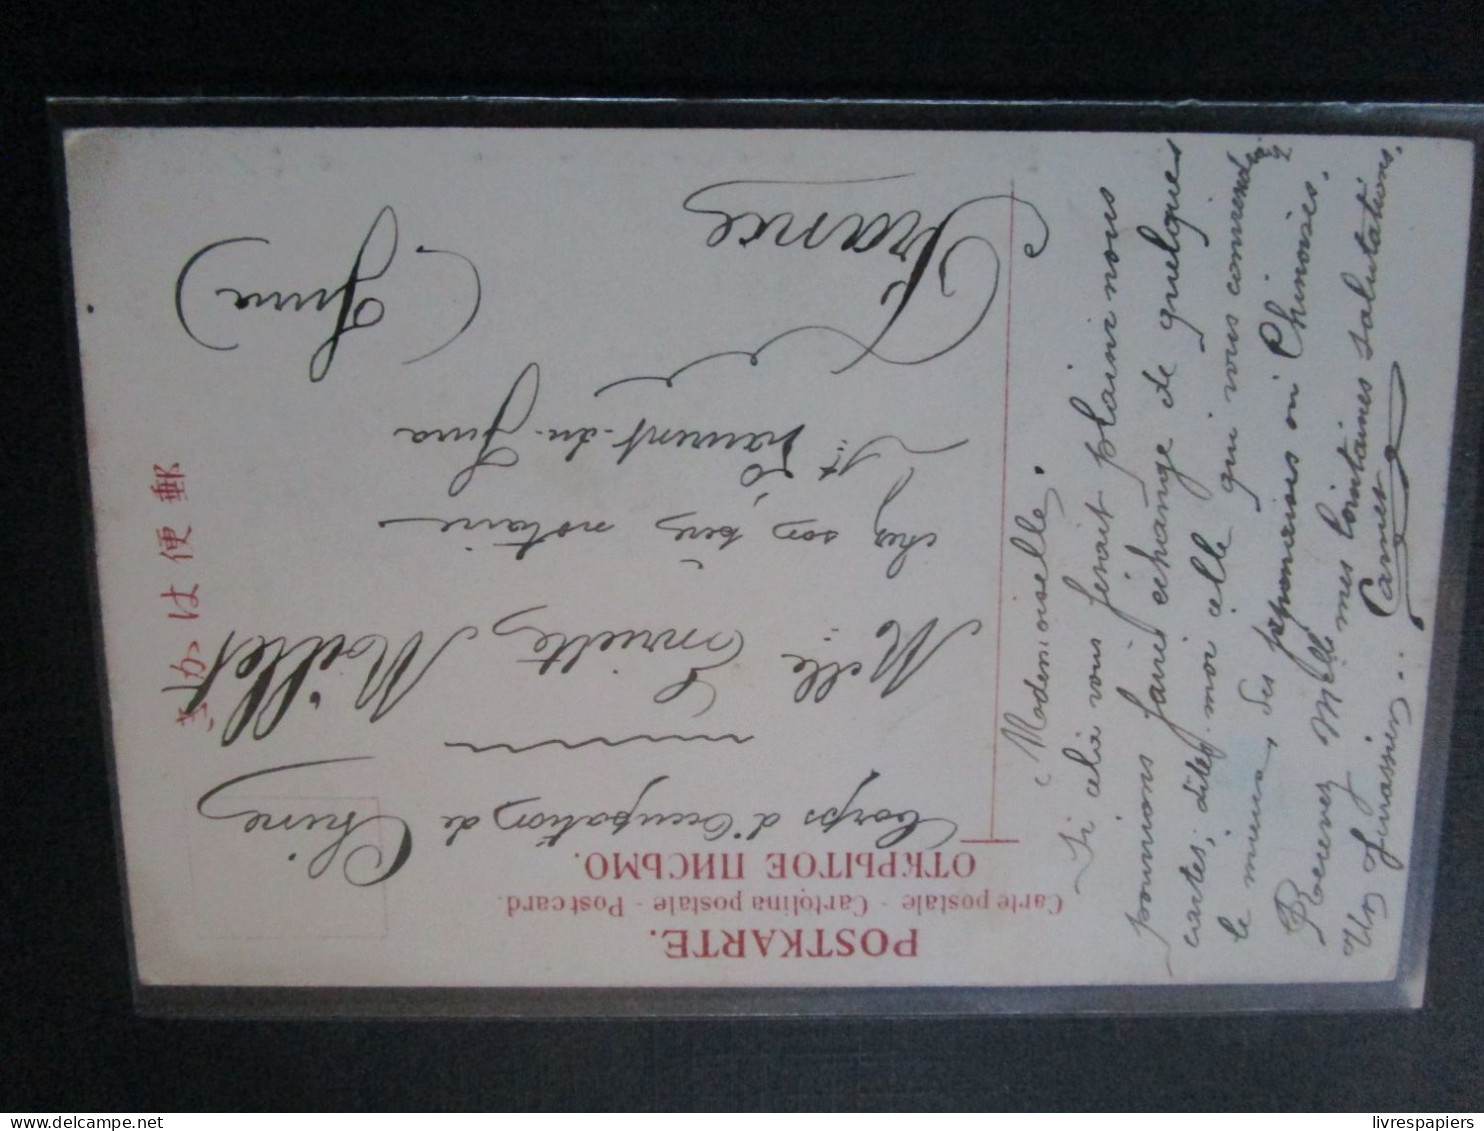 POSTKARTE.
Carte postale - Cartolina postale - Postcard.
ОТКРЫТОЕ ПИСЬМО.
郵便はがき
Corps d'Occupation de Chine
Melle Millet
chez son père notaire
St Laurent-du-Jura
(Jura)
France
Mademoiselle.
Si cela vous ferait plaisir nous
pourrions faire échange de quelques
cartes, dites moi celle qui vous
le mieux des japonaises ou Chinoises.
Recevez Melle mes lointaines salutations.
Un Jurassien.
livrespapiers